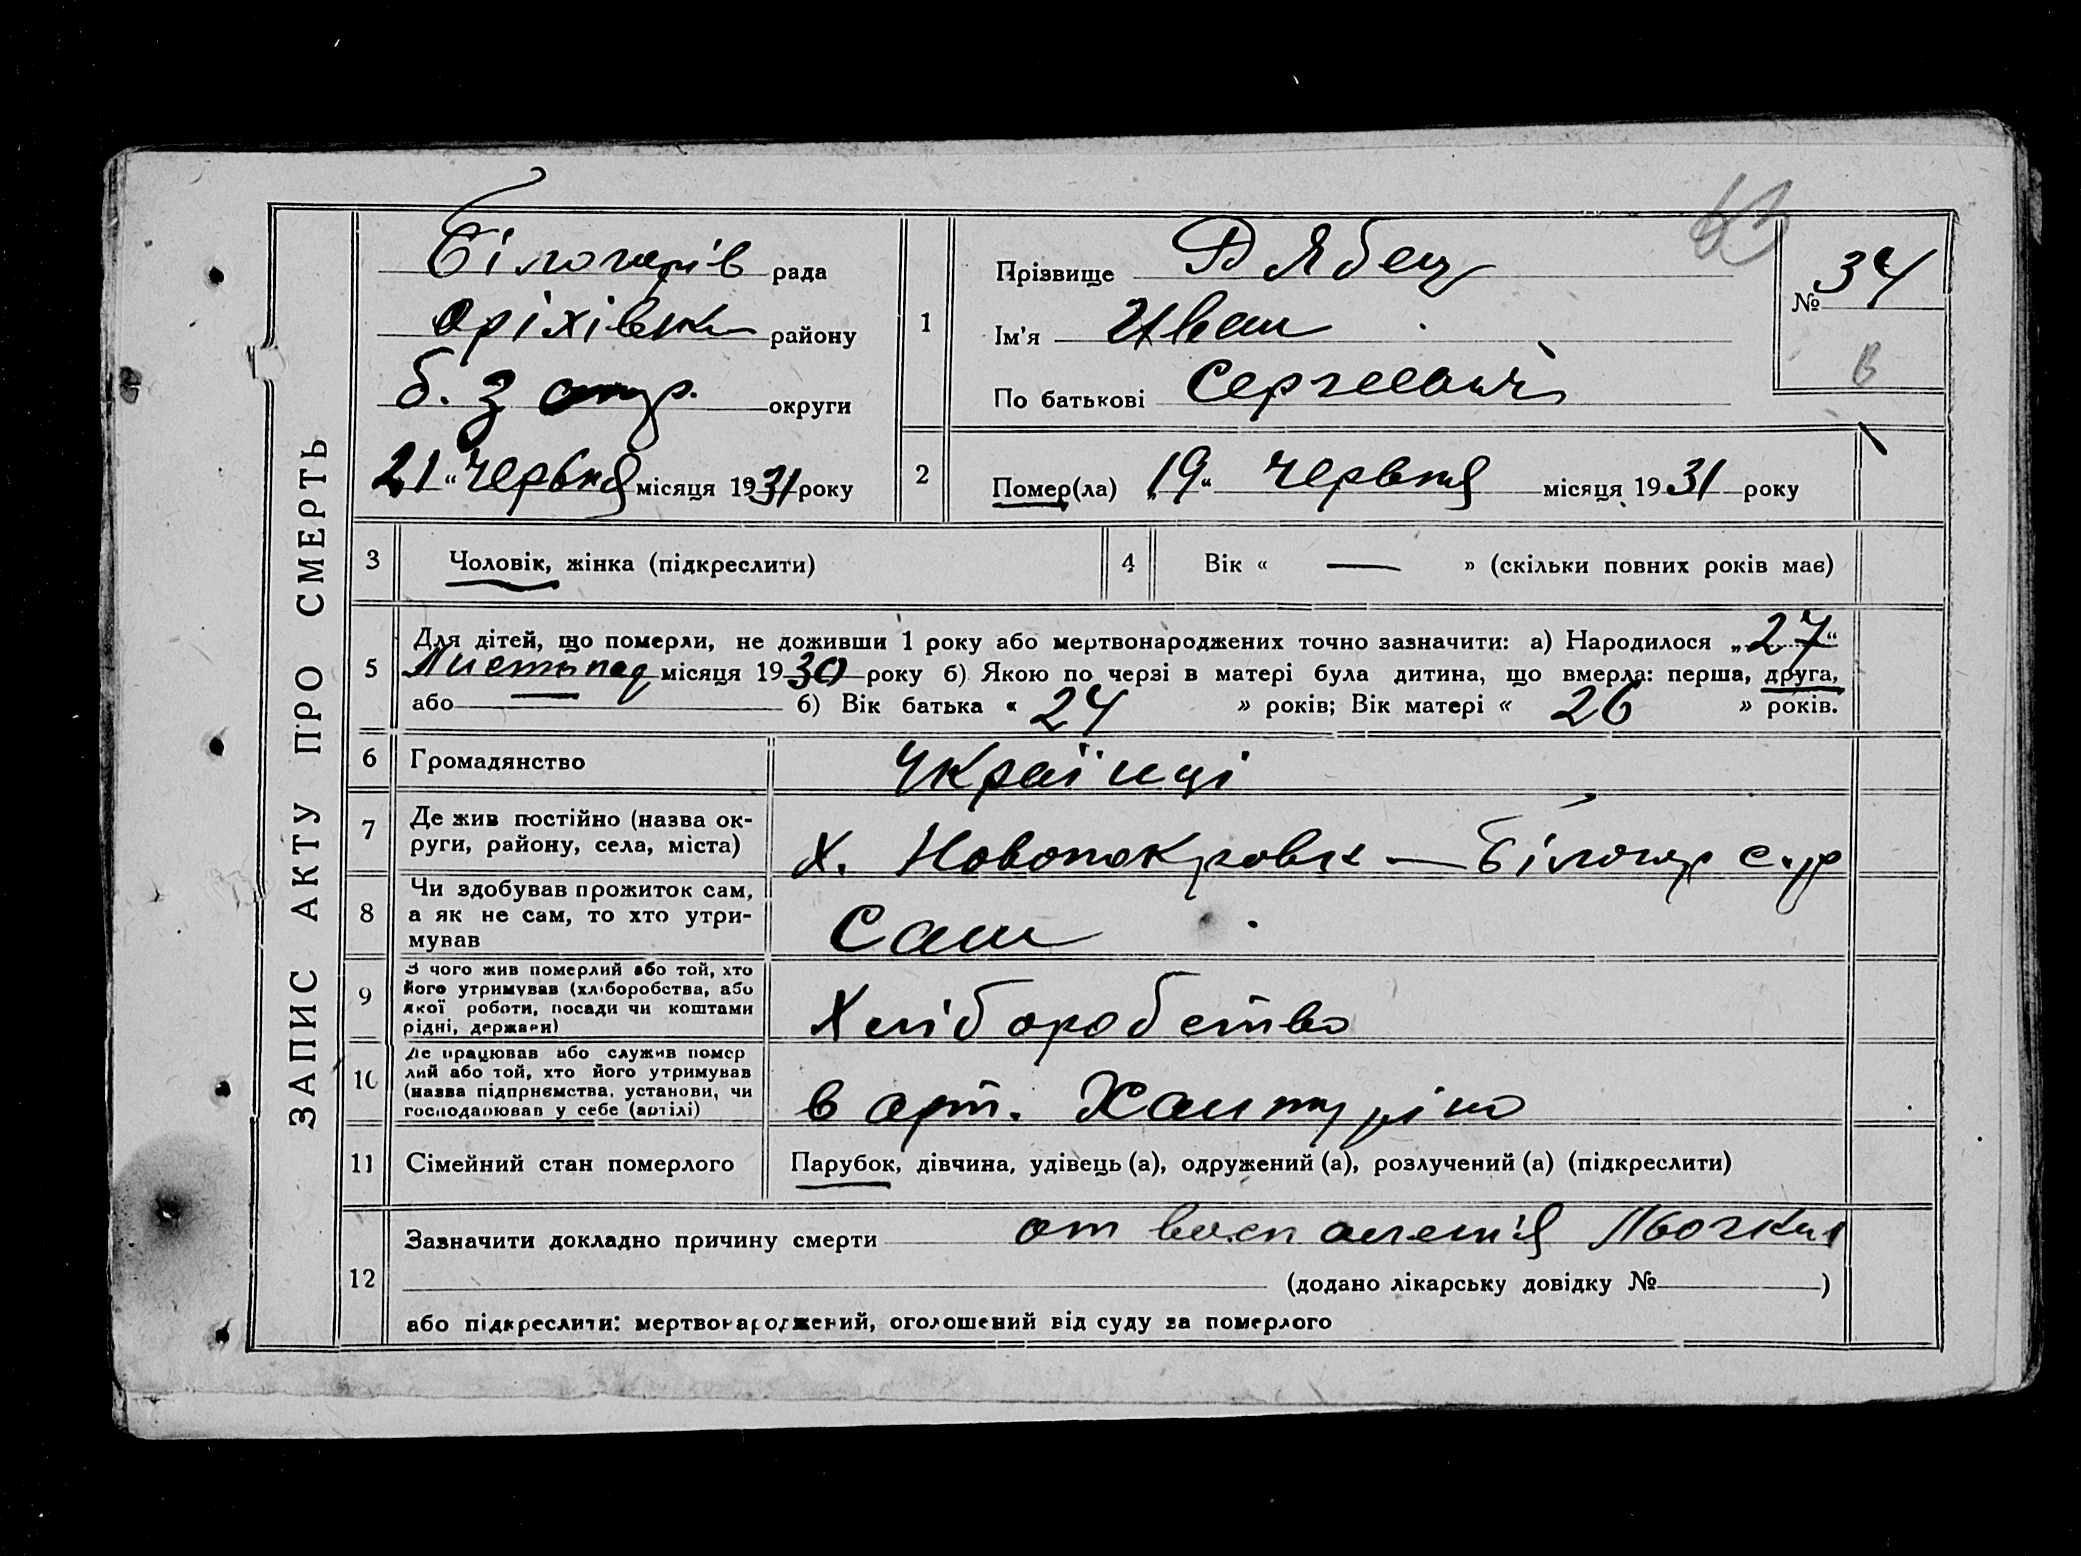 ЗАПИС АКТУ ПРО СМЕРТЬ
Білогорів рада
Оріхівськ району
б. З окр. округи
21 “ Червня місяця 1931 року
1
Прізвище Рябец
Ім'я Иван
По батькові Сергеевич
№ 34
в
2
Помер(ла) „19“ червня місяця 1931 року
3
Чоловік, жінка (підкреслити)
4
Вік « — » (скільки повних років має)
5
Для дітей, що померли, не доживши 1 року або мертвонароджених точно зазначити: а) Народилося „27“
Листопад місяця 1930 року б) Якою по черзі в матері була дитина, що вмерла: перша, друга,
або б) Вік батька « 24 » років; Вік матері « 26 » років.
6
Громадянство
Українці
7
Де жив постійно (назва ок-
руги, району, села, міста)
х. Новопокровк — Білогор с.р
8
Чи здобував прожиток сам,
а як не сам, то хто утри-
мував
Сам
9
З чого жив померлий або той, хто
його утримував (хліборобства, або
якої роботи, посади чи коштами
рідні, держави)
Хліборобство
10
Де працював або служив помер
лий або той, хто його утримував
(назва підприємства, установи, чи
господарював у себе (артілі)
в арт.
11
Сімейний стан померлого
Парубок, дівчина, удівець (а), одружений (а), розлучений (а) (підкреслити)
12
Зазначити докладно причину смерти от воспаленія
(додано лікарську довідку № )
або підкреслити: мертвонароджений, оголошений від суду за померлого